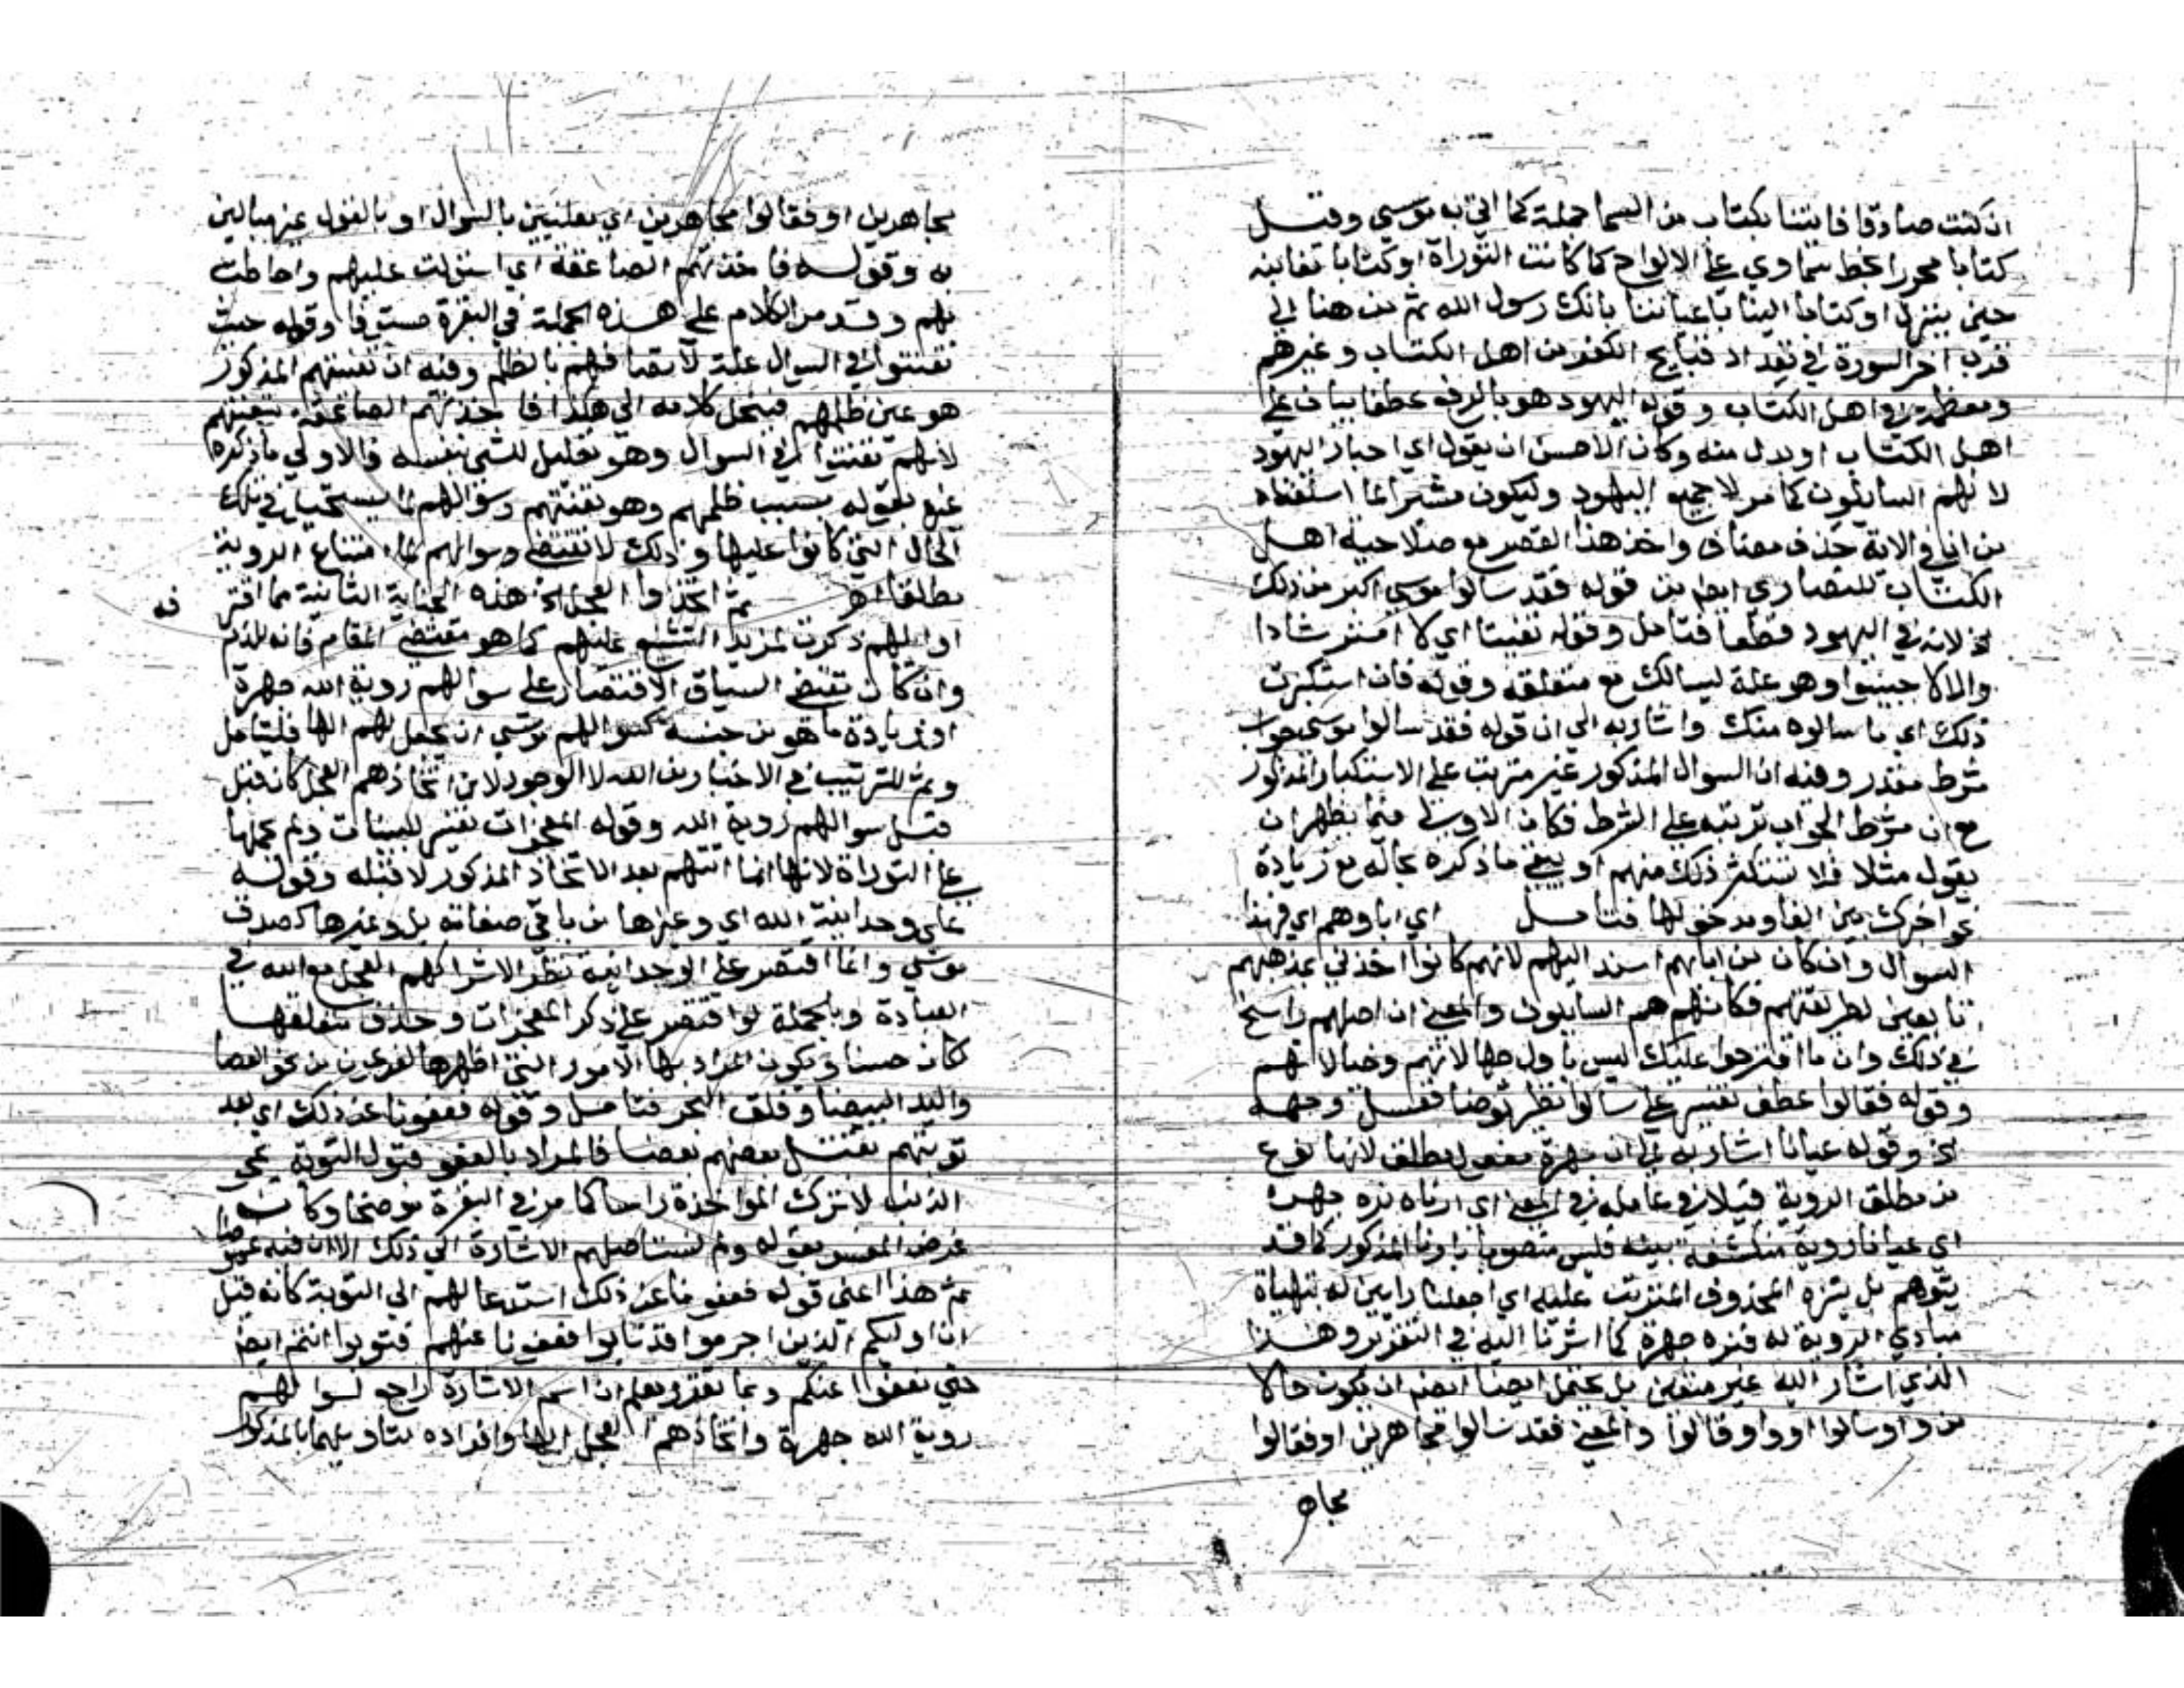 ان كنت صادقا فاتنا بكتاب من السما جملة كما اتى به موسى وقيل
كتابا محررا بخط سماوي على الالواح كما كانت التوراة او كتابا نعاينه
حين ينزل او كتابا الينا باعياننا بانك رسول الله ثم من هنا الى
قرب اخر السورة في تعداد قبايح الكفر من اهل الكتاب وغيرهم
ومعظمه في اهل الكتاب وقوله اليهود هو بالرفع عطف بيان على
اهل الكتاب او بدل منه وكان الاحسن ان يقول اي احبار اليهود
لانهم السايلون كما مر لا جميع اليهود وليكون مشيرا لما استفناه
من ان في الاية حذف مضاف واخذ هذا القصر مع صلاحية اهل
الكتاب للنصارى ايضا من قوله فقد سالوا موسى اكبر من ذلك
الخ لانه في اليهود قطعا فتامل وقوله تعنيتا اي لا استرشادا
والا لاجيبوا وهو علة ليسالك مع متعلقه وقوله فان استكبرت
ذلك اي ما سالوه منك واشار به الى ان قوله فقد سالوا موسى جواب
شرط مقدر وفيه ان السوال المذكور غير مترتب على الاستكبار المذكور
مع ان شرط الجواب ترتبه على الشرط فكان الاولى فيما يظهر ان
يقول مثلا فلا تستكثر ذلك منهم او يبقي ما ذكره بحاله مع زيادة
نحو اخبرك بين الفا ومدخولها فتامل اي اباوهم اي فهذا
السوال وان كان من ابايهم اسند اليهم لانهم كانوا اخذين بمذهبهم
تابعين لطريقتهم فكانهم هم السايلون والمعنى ان اصلهم راسخ
في ذلك وان ما اقترحوا عليك ليس باول جهالاتهم وخيالاتهم
وقوله فقالوا عطف تفسير على سالوا نظير توضا فغسل وجهه
الخ وقوله عيانا اشار به الى ان جهرة مفعول مطلق لانها نوع
من مطلق الروية فيلاقي عامله في المعنى اي ارناه نره جهرة
اي عيانا روية منكشفة بينة فليس منصوبا بارنا المذكور كما قد
يتوهم بل بنره المحذوف المترتب عليه اي اجعلنا رايين له بتهياة
مبادي الروية له فنره جهرة كما اشرنا اليه في التقرير وهذا
الذي اشار اليه غير متعين بل يحتمل ايضا ان يكون حالا
من واو سالوا او واو قالوا والمعنى فقد سالوا مجاهرين او فقالوا
مجاهر
مجاهرين او فقالوا مجاهرين اي معلنين بالسوال او بالقول غير مبالين
به وقوله فاخذتهم الصاعقة اي استولت عليهم واحاطت
بهم وقد مر الكلام على هذه الجملة في البقرة مستوفا وقوله حيث
تعنتوا في السوال علة لاتصافهم بالظلم وفيه ان تعنتهم المذكور
هو عين ظلمهم فينحل كلامه الى هكذا فاخذتهم الصاعقة بتعنتهم
لانهم تعنتوا في السوال وهو تعليل للشي بنفسه فالاولى ما ذكره
غيره بقوله بسبب ظلمهم وهو تعنتهم وسوالهم لما يستحيل في تلك
الحال التي كانوا عليها وذلك لا يقتضي امتناع الروية
مطلقا اهـ ثم اتخذوا العجل الخ هذه الجناية الثانية مما اقترفه
اوايلهم ذكرت لمزيد التشنيع عليهم كما هو مقتضى المقام فانه للذم
وان كان يقتضي السياق الاقتصار على سوالهم روية الله جهرة
او زيادة ما هو من جنسه كسوالهم موسى ان يجعل لهم الها فليتامل
وثم للترتيب في الاخبار من الله لا الوجود لان اتخاذهم العجل كان قبل
قبل سوالهم روية الله وقوله المعجزات تفسير للبينات ولم يحملها
على التوراة لانها انما اتتهم بعد الاتخاذ المذكور لا قبله وقوله
على وحدانية الله اي وغيرها من باقي صفاته بل وغيرها كصدق
موسى وانما اقتصر على الوحدانية نظرا لاشراكهم العجل مع الله في
العبادة وبالجملة لو اقتصر على ذكر المعجزات وحذف متعلقها
لكان حسنا ويكون المراد بها الامور التي اظهرها لفرعون من نحو العصا
واليد البيضا وفلق البحر فتامل وقوله فعفونا عن ذلك اي بعد
توبتهم بقتل بعضهم بعضا فالمراد بالعفو قبول التوبة بمحو
الذنب لا ترك المواخذة راسا كما مر في البقرة موضحا وكان
غرض المفسر بقوله ولم نستاصلهم الاشارة الى ذلك الا ان فيه غموضا
ثم هذا اعني قوله فعفونا عن ذلك استدعا لهم الى التوبة كانه قيل
ان اوليكم الذين اجرموا قد تابوا فعفونا عنهم فتوبوا انتم ايضا
حتى نعفو عنكم وبما تقرر يعلم ان اسم الاشارة راجع لسوالهم
روية الله جهرة واتخاذهم العجل الها وافراده بتاويلهما بالمذكور